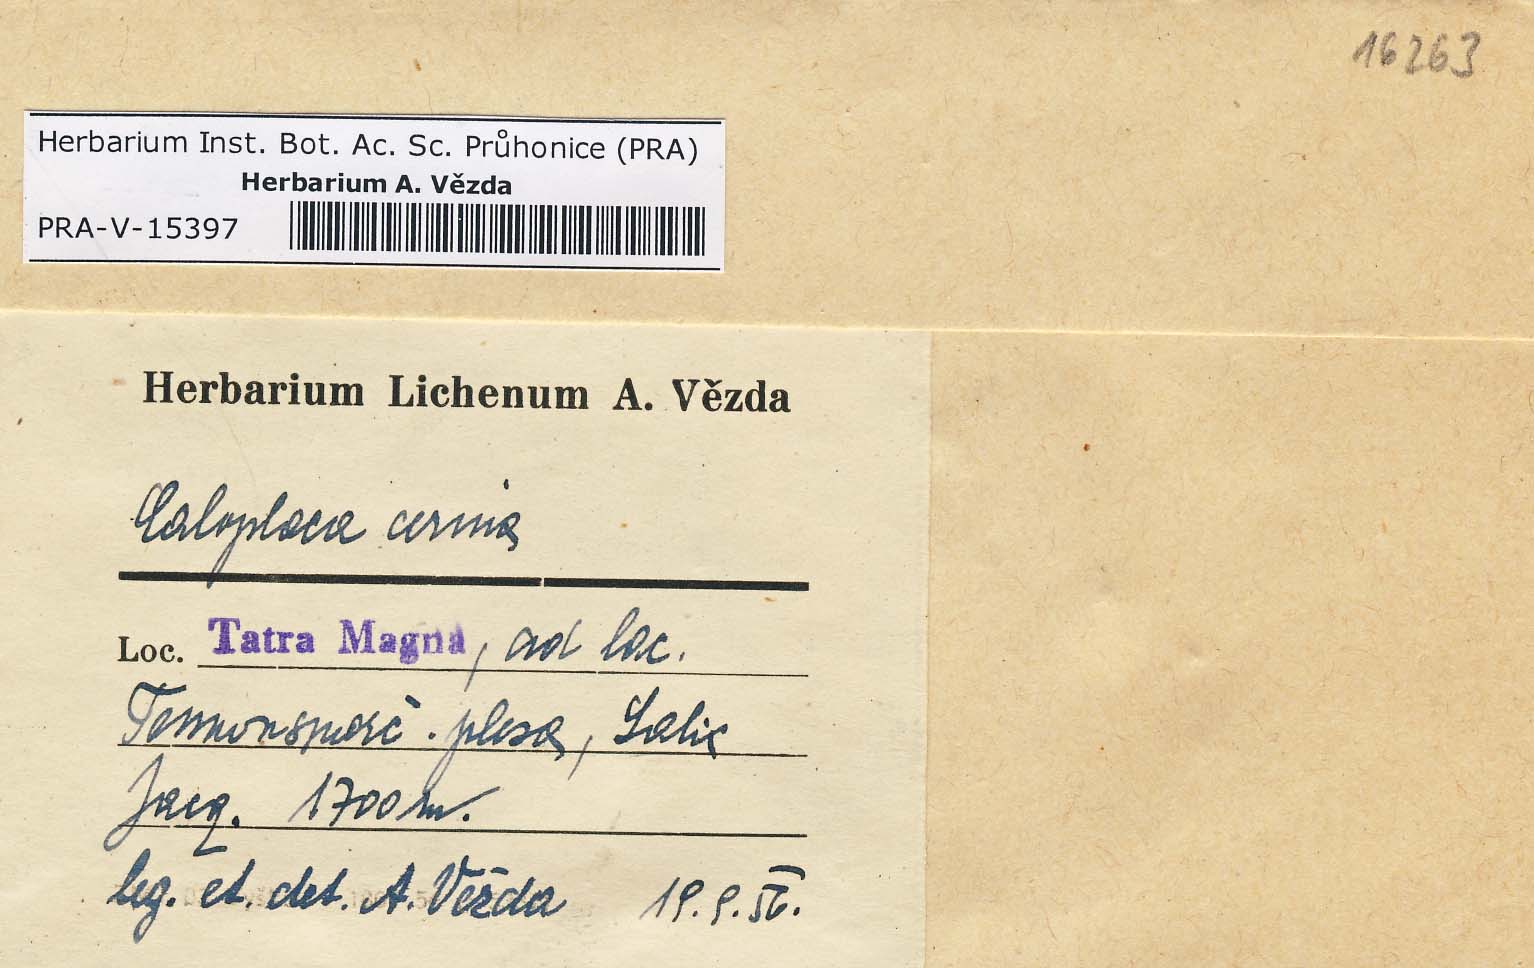 16263
Herbarium Inst. Bot. Ac. Sc. Průhonice (PRA)
Herbarium A. Vězda
PRA-V-15397
Herbarium Lichenum A. Vězda
Caloplaca cerina
Loc. Tatra Magna, ad lac.
Temnosmreč. plesa, Salix
Jacq. 1700 m.
leg. et. det. A. Vězda 19. 9. 56.